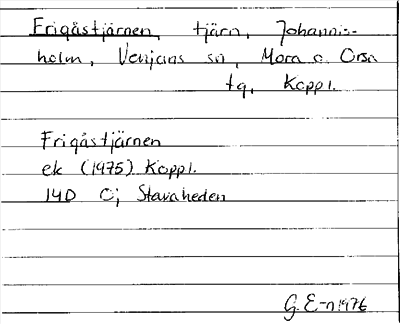 Frigåstjärnen, tjärn, Johannis-
holm, Venjans sn, Mora o. Orsa
tg, Koppl.
Frigåstjärnen
ek (1975) Koppl.
14D C; Stavaheden
G. E-n 1976